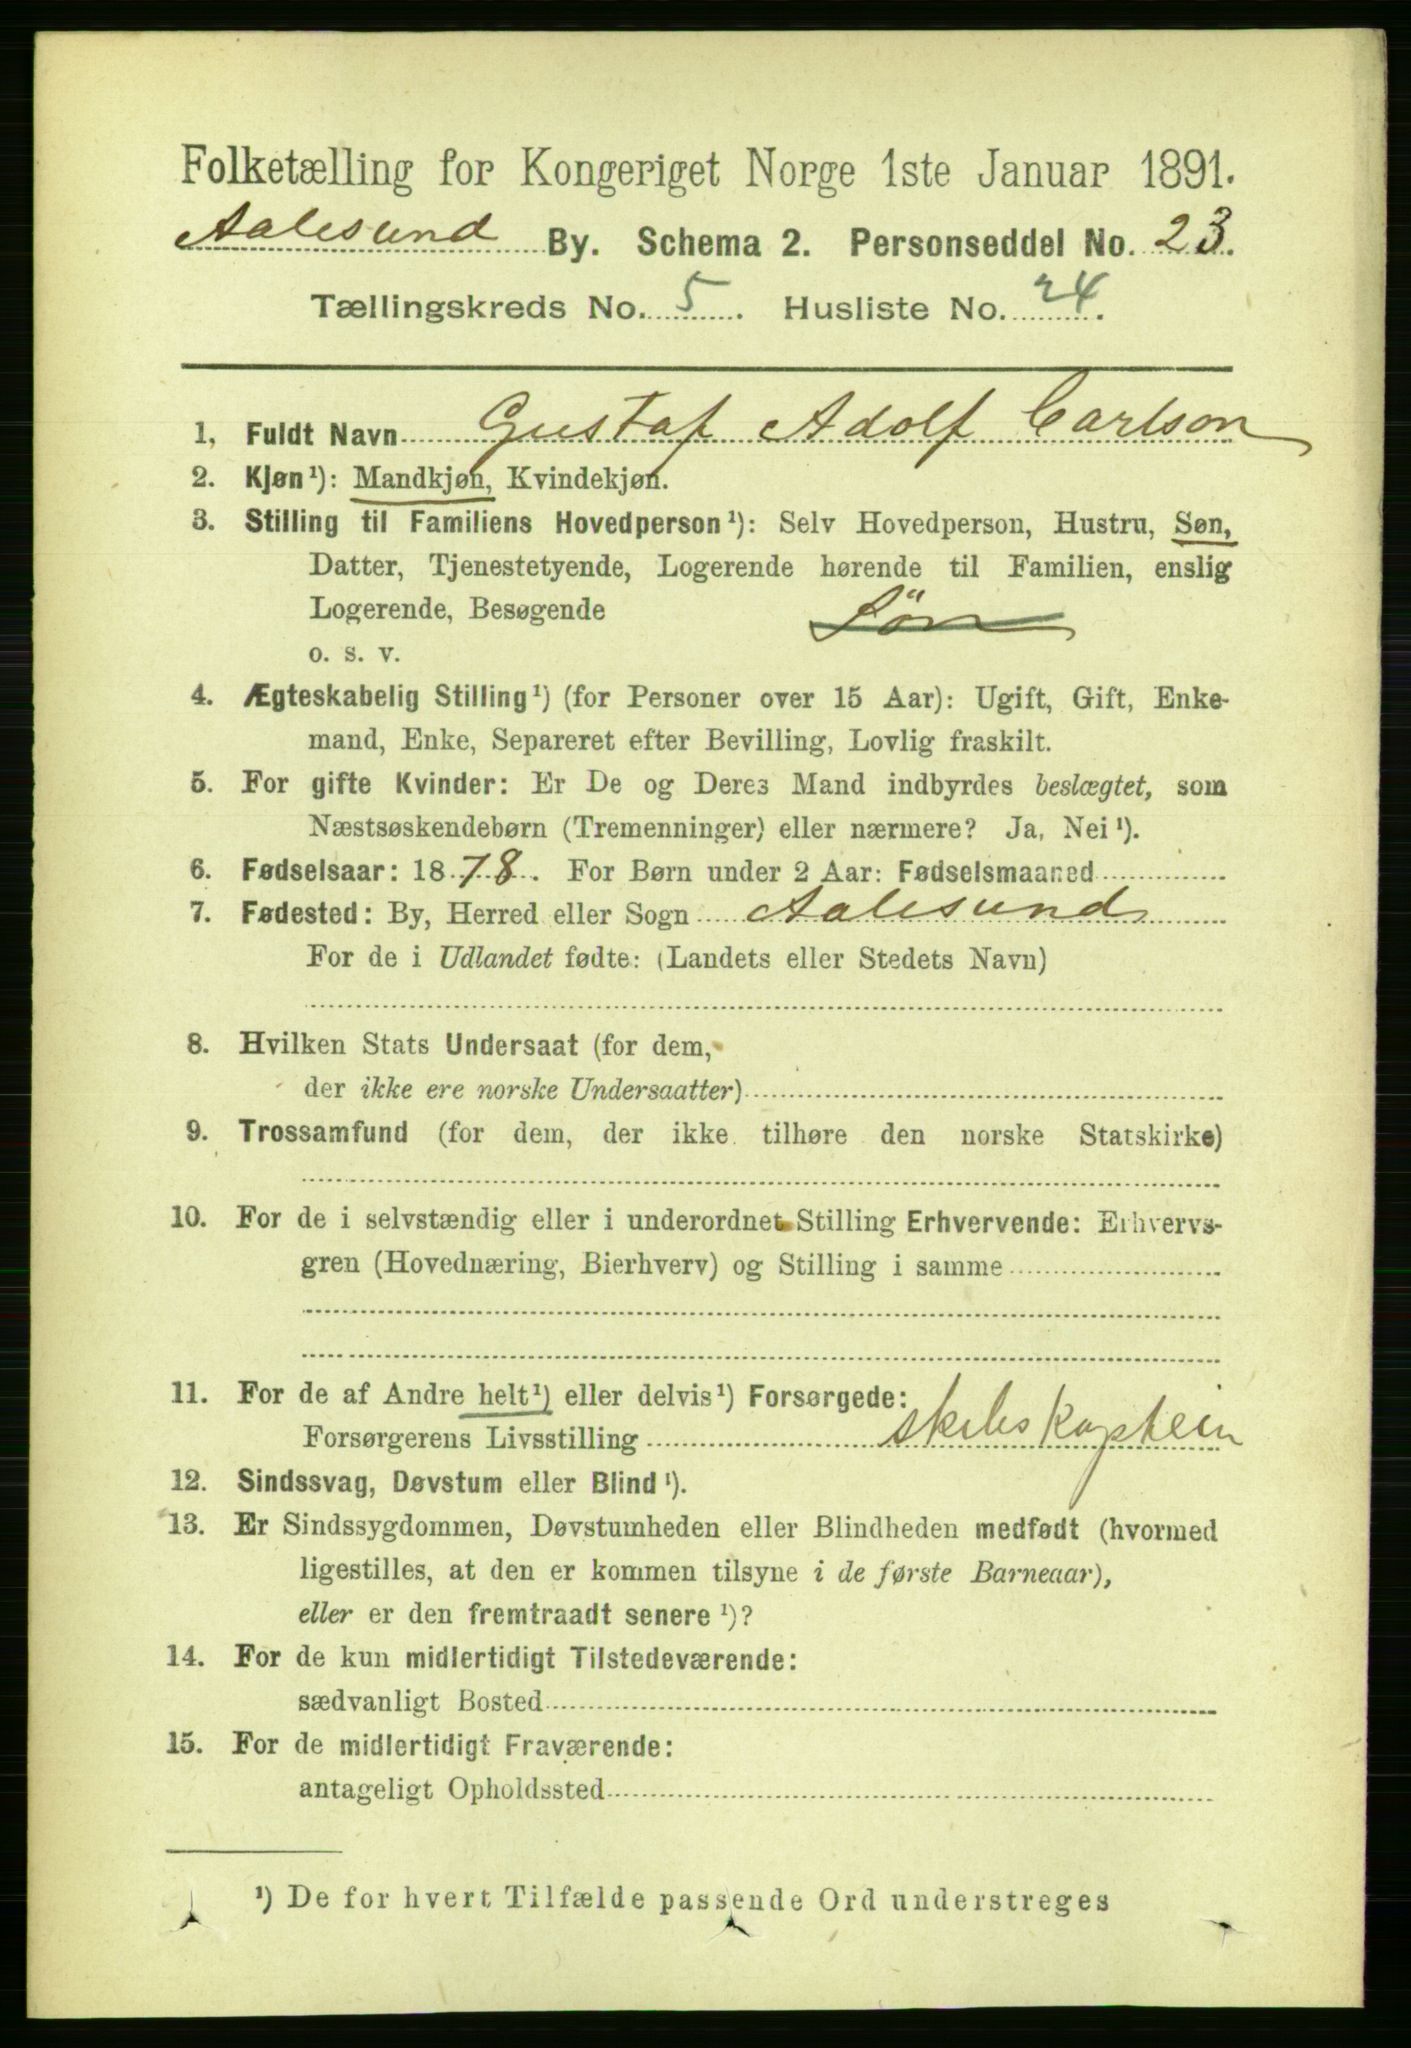 Folketælling for Kongeriget Norge 1ste Januar 1891.
Aalesund By. Schema 2. Personseddel No. 23.
Tællingskreds No. 5. Husliste No. 24.
1, Fuldt Navn Gustaf Adolf Carlson
2. Kjøn¹): Mandkjøn, Kvindekjøn.
3. Stilling til Familiens Hovedperson¹): Selv Hovedperson, Hustru, Søn,
Datter, Tjenestetyende, Logerende hørende til Familien, enslig
Logerende, Besøgende Sön
o. s. v.
4. Ægteskabelig Stilling¹) (for Personer over 15 Aar): Ugift, Gift, Enke-
mand, Enke, Separeret efter Bevilling, Lovlig fraskilt.
5. For gifte Kvinder: Er De og Deres Mand indbyrdes beslægtet, som
Næstsøskendebørn (Tremenninger) eller nærmere? Ja, Nei¹).
6. Fødselsaar: 1878. For Børn under 2 Aar: Fødselsmaaned
7. Fødested: By, Herred eller Sogn Aalesund
For de i Udlandet fødte: (Landets eller Stedets Navn)
8. Hvilken Stats Undersaat (for dem,
der ikke ere norske Undersaatter)
9. Trossamfund (for dem, der ikke tilhøre den norske Statskirke)
10. For de i selvstændig eller i underordnet Stilling Erhvervende: Erhvervs-
gren (Hovednæring, Bierhverv) og Stilling i samme
11. For de af Andre helt¹) eller delvis¹) Forsørgede:
Forsørgerens Livsstilling skibskaptein
12. Sindssvag, Døvstum eller Blind¹).
13. Er Sindssygdommen, Døvstumheden eller Blindheden medfødt (hvormed
ligestilles, at den er kommen tilsyne i de første Barneaar),
eller er den fremtraadt senere¹)?
14. For de kun midlertidigt Tilstedeværende:
sædvanligt Bosted
15. For de midlertidigt Fraværende:
antageligt Opholdssted
¹) De for hvert Tilfælde passende Ord understreges